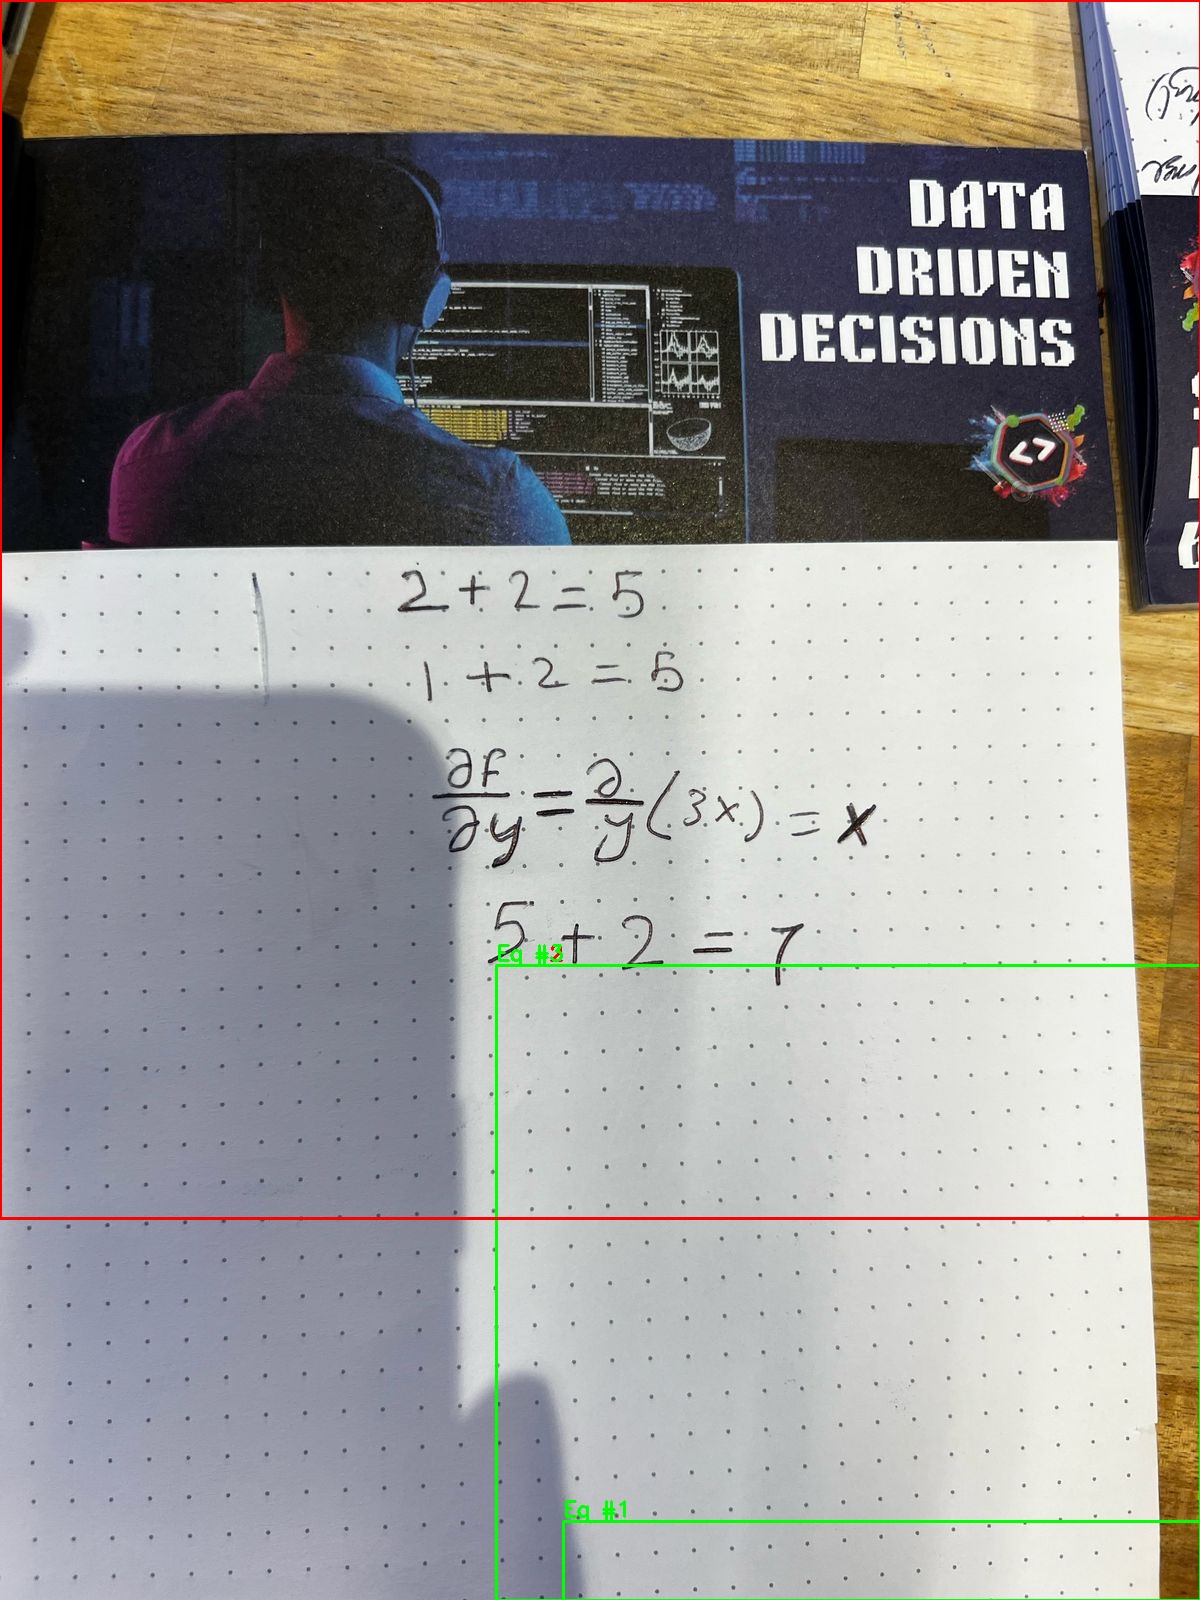 DATA
DRIVEN
DECISIONS
<>
2 + 2 = 5
1 + 2 = 5
∂f/∂y = ∂/y (3x) = x
5 + 2 = 7
Eq #3
Eq #1